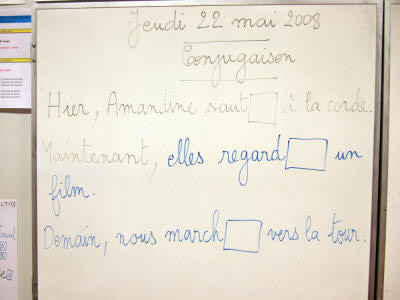 Jeudi 22 mai 2008
Conjugaison
Hier, Amandine saut à la corde.
Maintenant, elles regard un
film.
Demain, nous march vers la tour.